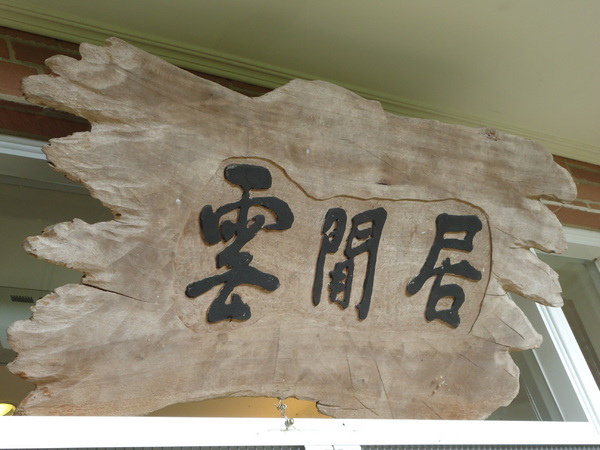 雲間居